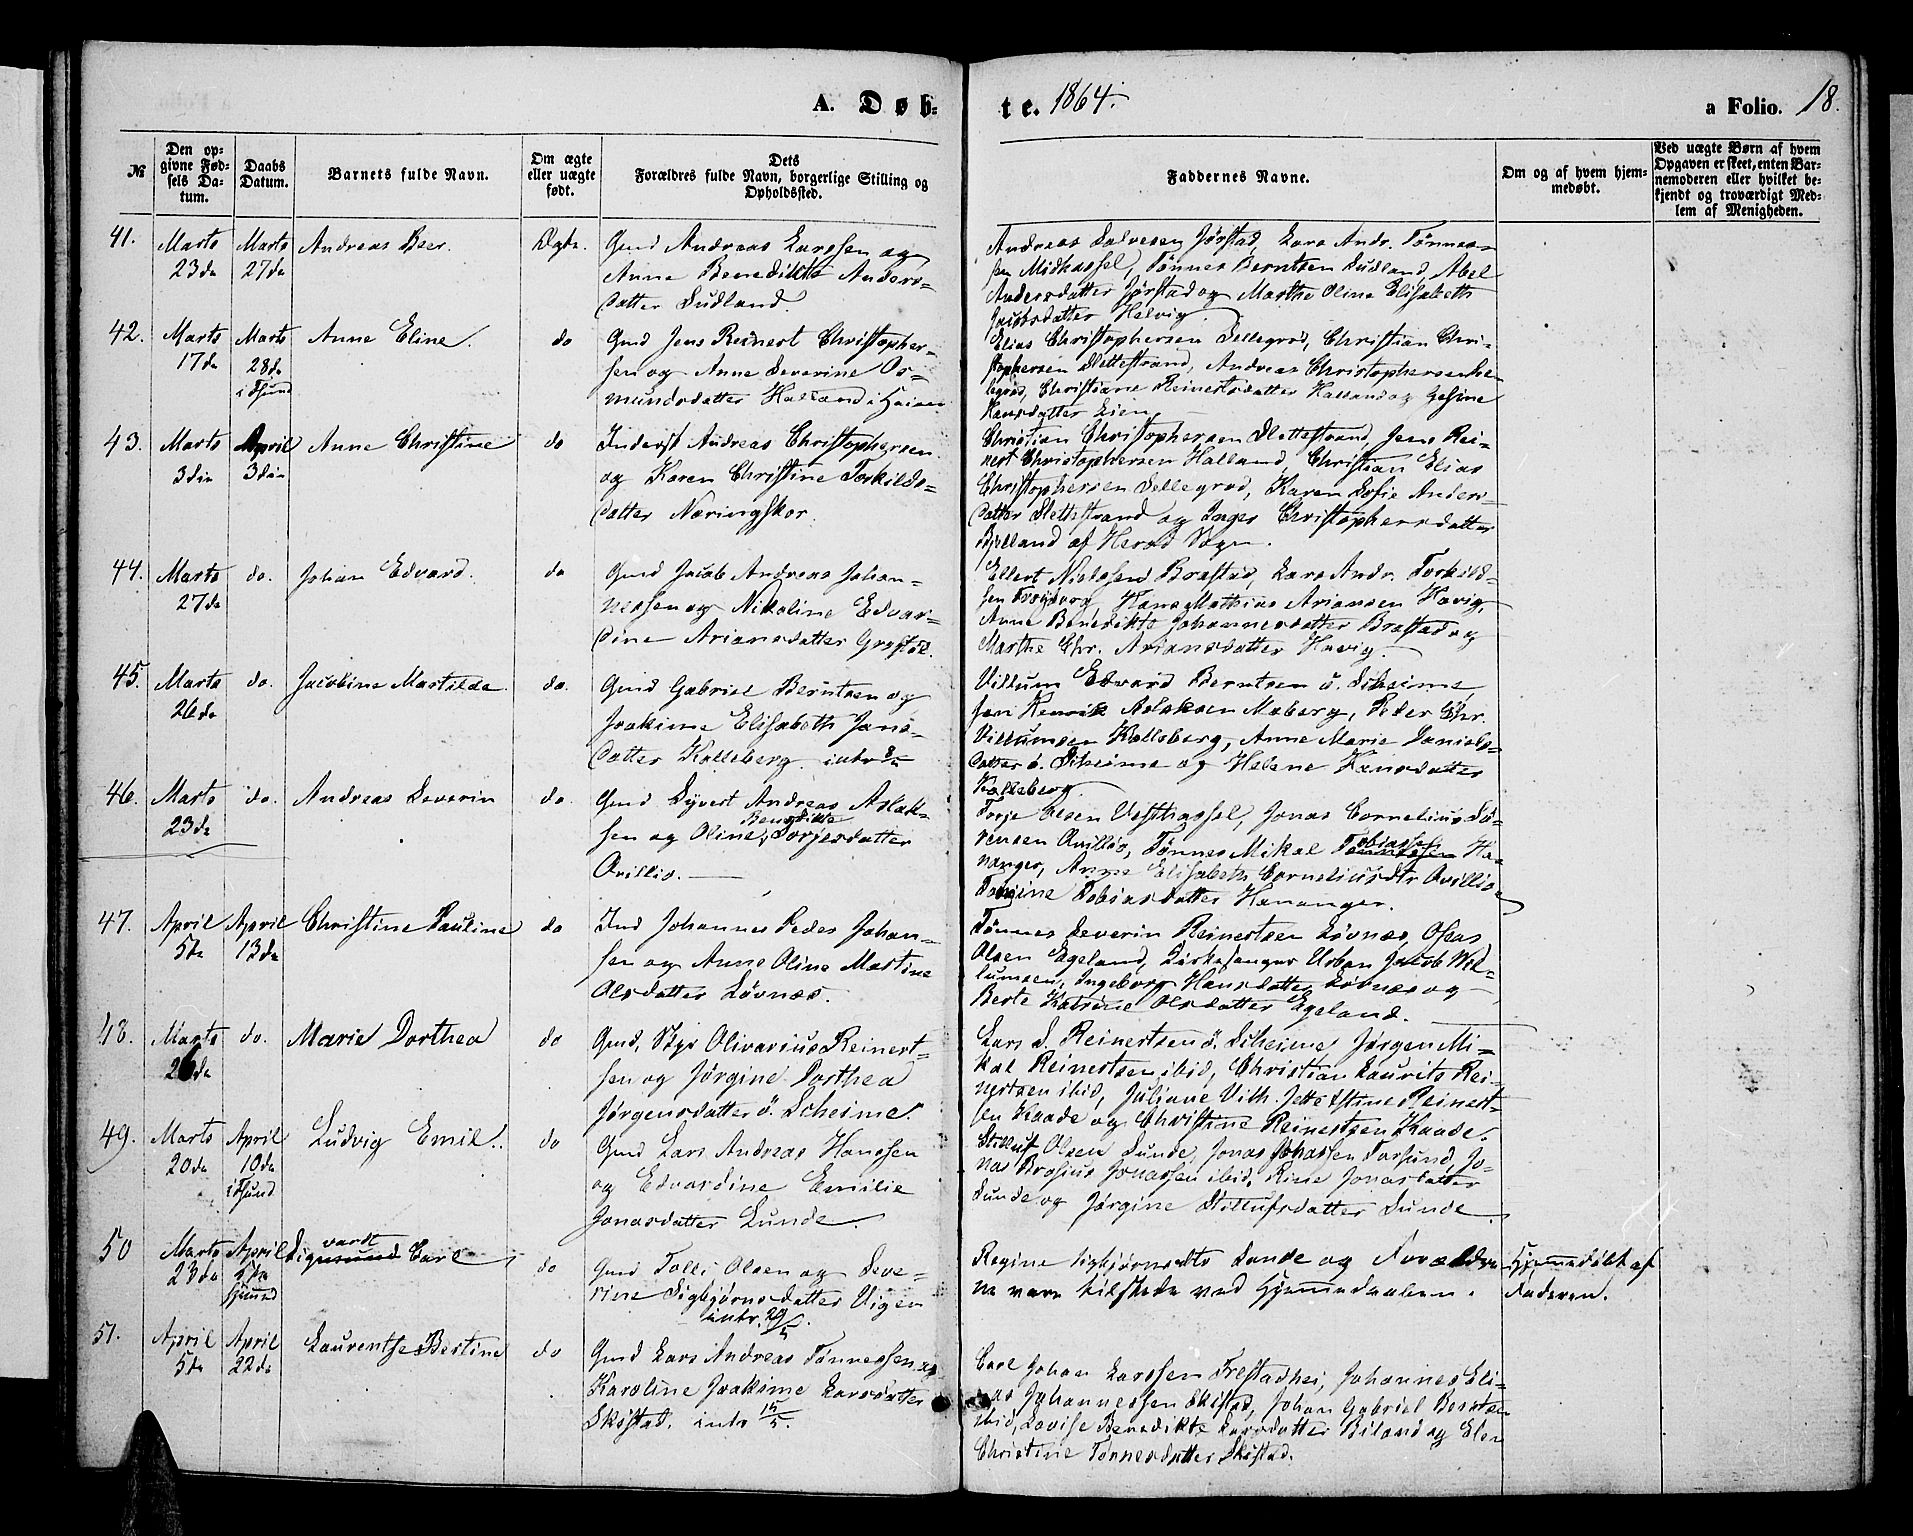 A. Døb-
te. 1864.
a Folio. 18.
№
Den op-
givne Fød-
sels Da-
tum.
Daabs
Datum.
Barnets fulde Navn.
Om ægte
eller uægte
født.
Dets
Forældres fulde Navn, borgerlige Stilling og
Opholdssted.
Faddernes Navne.
Om og af hvem hjem-
medøbt.
Ved uægte Børn af hvem
Opgaven er skeet, enten Bar-
nemoderen eller hvilket be-
kjendt og troværdigt Med-
lem af Menigheden.
41.
Marts
23de
Marts
27de
Andreas Beer.
Ægte.
Gmd Andreas Larssen og
Anne Benedikte Anders-
datter Sudland.
Andreas Salvesen Jørstad, Lars Andr. Tønnes-
sen Midhassel, Tønnes Berntsen Sudland, Abel
Andersdatter Jørstad og Marthe Oline Elisabeth
Jacobsdatter Helvig.
42.
Marts
17de
Marts
28de
i Fsund
Anne Eline.
do
Gmd Jens Reinert Christopher-
sen og Anne Severine Os-
mundsdatter Halland i
Elias Christophersen Sellegrod, Christian Chri-
stophersen Slettestrand, Andreas Christophersen
Christiane Reinertsdatter Halland og Gesine
Hansdatter Lien.
43.
Marts
3die
April
3die
Anne Christine
do
Inderst Andreas Christophersen
og Karen Christine Torkilds-
datter Næringskor.
Christian Christophersen Slettestrand, Jens Rei-
nert Christophersen Halland, Christian Elias
Christophersen Sellegrod, Karen Sofie Anders-
datter Slettestrand og Inger Christophersdatter
Bjelland af Herod Sogn.
44.
Marts
27de
do.
Johan Edvard.
do
Gmd Jacob Andreas Johan-
nessen og Nikoline Edvar-
dine Ariansdatter Grostøl.
Ellert Nielssen Brastad, Lars Andr. Torkild-
sen Frøyborg, Hans Mathias Ariansen Hovig,
Anne Benedikte Johannesdatter Brastad og
Marthe Chr. Ariansdatter Hovig.
45.
Marts
26de
do.
Jacobine Mathilde
do.
Gmd Gabriel Berntsen og
Joakime Elisabeth Jens-
datter Kalleberg. intr
Villum Edvard Berntsen ö. Skeime,
Aslaksen Moberg, Peder Chr.
Villumsen Kalleberg, Anne Marie Daniels-
datter ö. Skeime og Helene Hansdatter
Kalleberg.
46.
Marts
23de
do.
Andreas Severin
do
Gmd Syvert Andreas Aslak-
sen og Oline Benedikte Torjesdatter
Ovillio.
Torje Olsen Vesthassel, Jonas Cornelius Sø-
rensen Ovillio, Tønnes Mikal Tobiassen Ha-
nanger, Anne Elisabeth Corneliusdtr Ovillio
Tobine Tobiasdatter Hananger.
47.
April
5te
April
13de
Christine Pauline
do
Ind Johannes Peder Johan-
sen og Anne Oline Martine
Olsdatter Løvnæs.
Tønnes Severin Reinertsen Løvnæs, Osea
Olsen Egeland, Kirkesanger Urban Jacob Wil-
lumsen, Ingeborg Hansdatter Løvnæs og
Berte Katrine Olsdatter Egeland.
48.
Marts
26de
do.
Marie Dorthea
do
Gmd, Olivarius Reinert-
sen og Jørgine Dorthea
Jørgensdatter ö. Scheime.
Lars S. Reinertsen ö. Skeime, Jørgen Mi-
kal Reinertsen ibid, Christian Laurits Rei-
nertsen ibid, Juliane Vilh. Reinert-
sen Kaade og Christine Reinertsen Kaade.
49.
Marts
20de
April
10de
i Fsund
Ludvig Emil.
do
Gmd Lars Andreas Hanssen
og Edvardine Emilie
Jonasdatter Lunde.
Stilluf Olsen Lunde, Jonas Johassen Farsund, Jo-
nas Brosius Jonassen ibid, Rine Jonasdatter
Lunde og Jørgine Stillufsdatter Lunde
50
Marts
23de
April
5te
Sigvardt Carl
do
Gmd Tolli Olsen og Seve-
rine Sigbjørnsdatter Vigen
intr. 29/5.
Regine Sigbjørnsdtr Lunde og Forældre-
ne vare tilstede ved Hjemmedaaben.
Hjemmedøbt af
Faderen.
51.
April
5te
April
22de
Laurentse Bertine
do
Gmd Lars Andreas Tønnessen og
Karoline Joakime Larsdatter
Skistad. intr 15/5.
Carl Johan Larssen Frestadhei, Johannes Eli-
as Johannessen Skistad, Johan Gabriel Berntsen
ibid, Lovise Benedikte Larsdatter Biland og Elen
Christine Tønnesdatter Skistad.